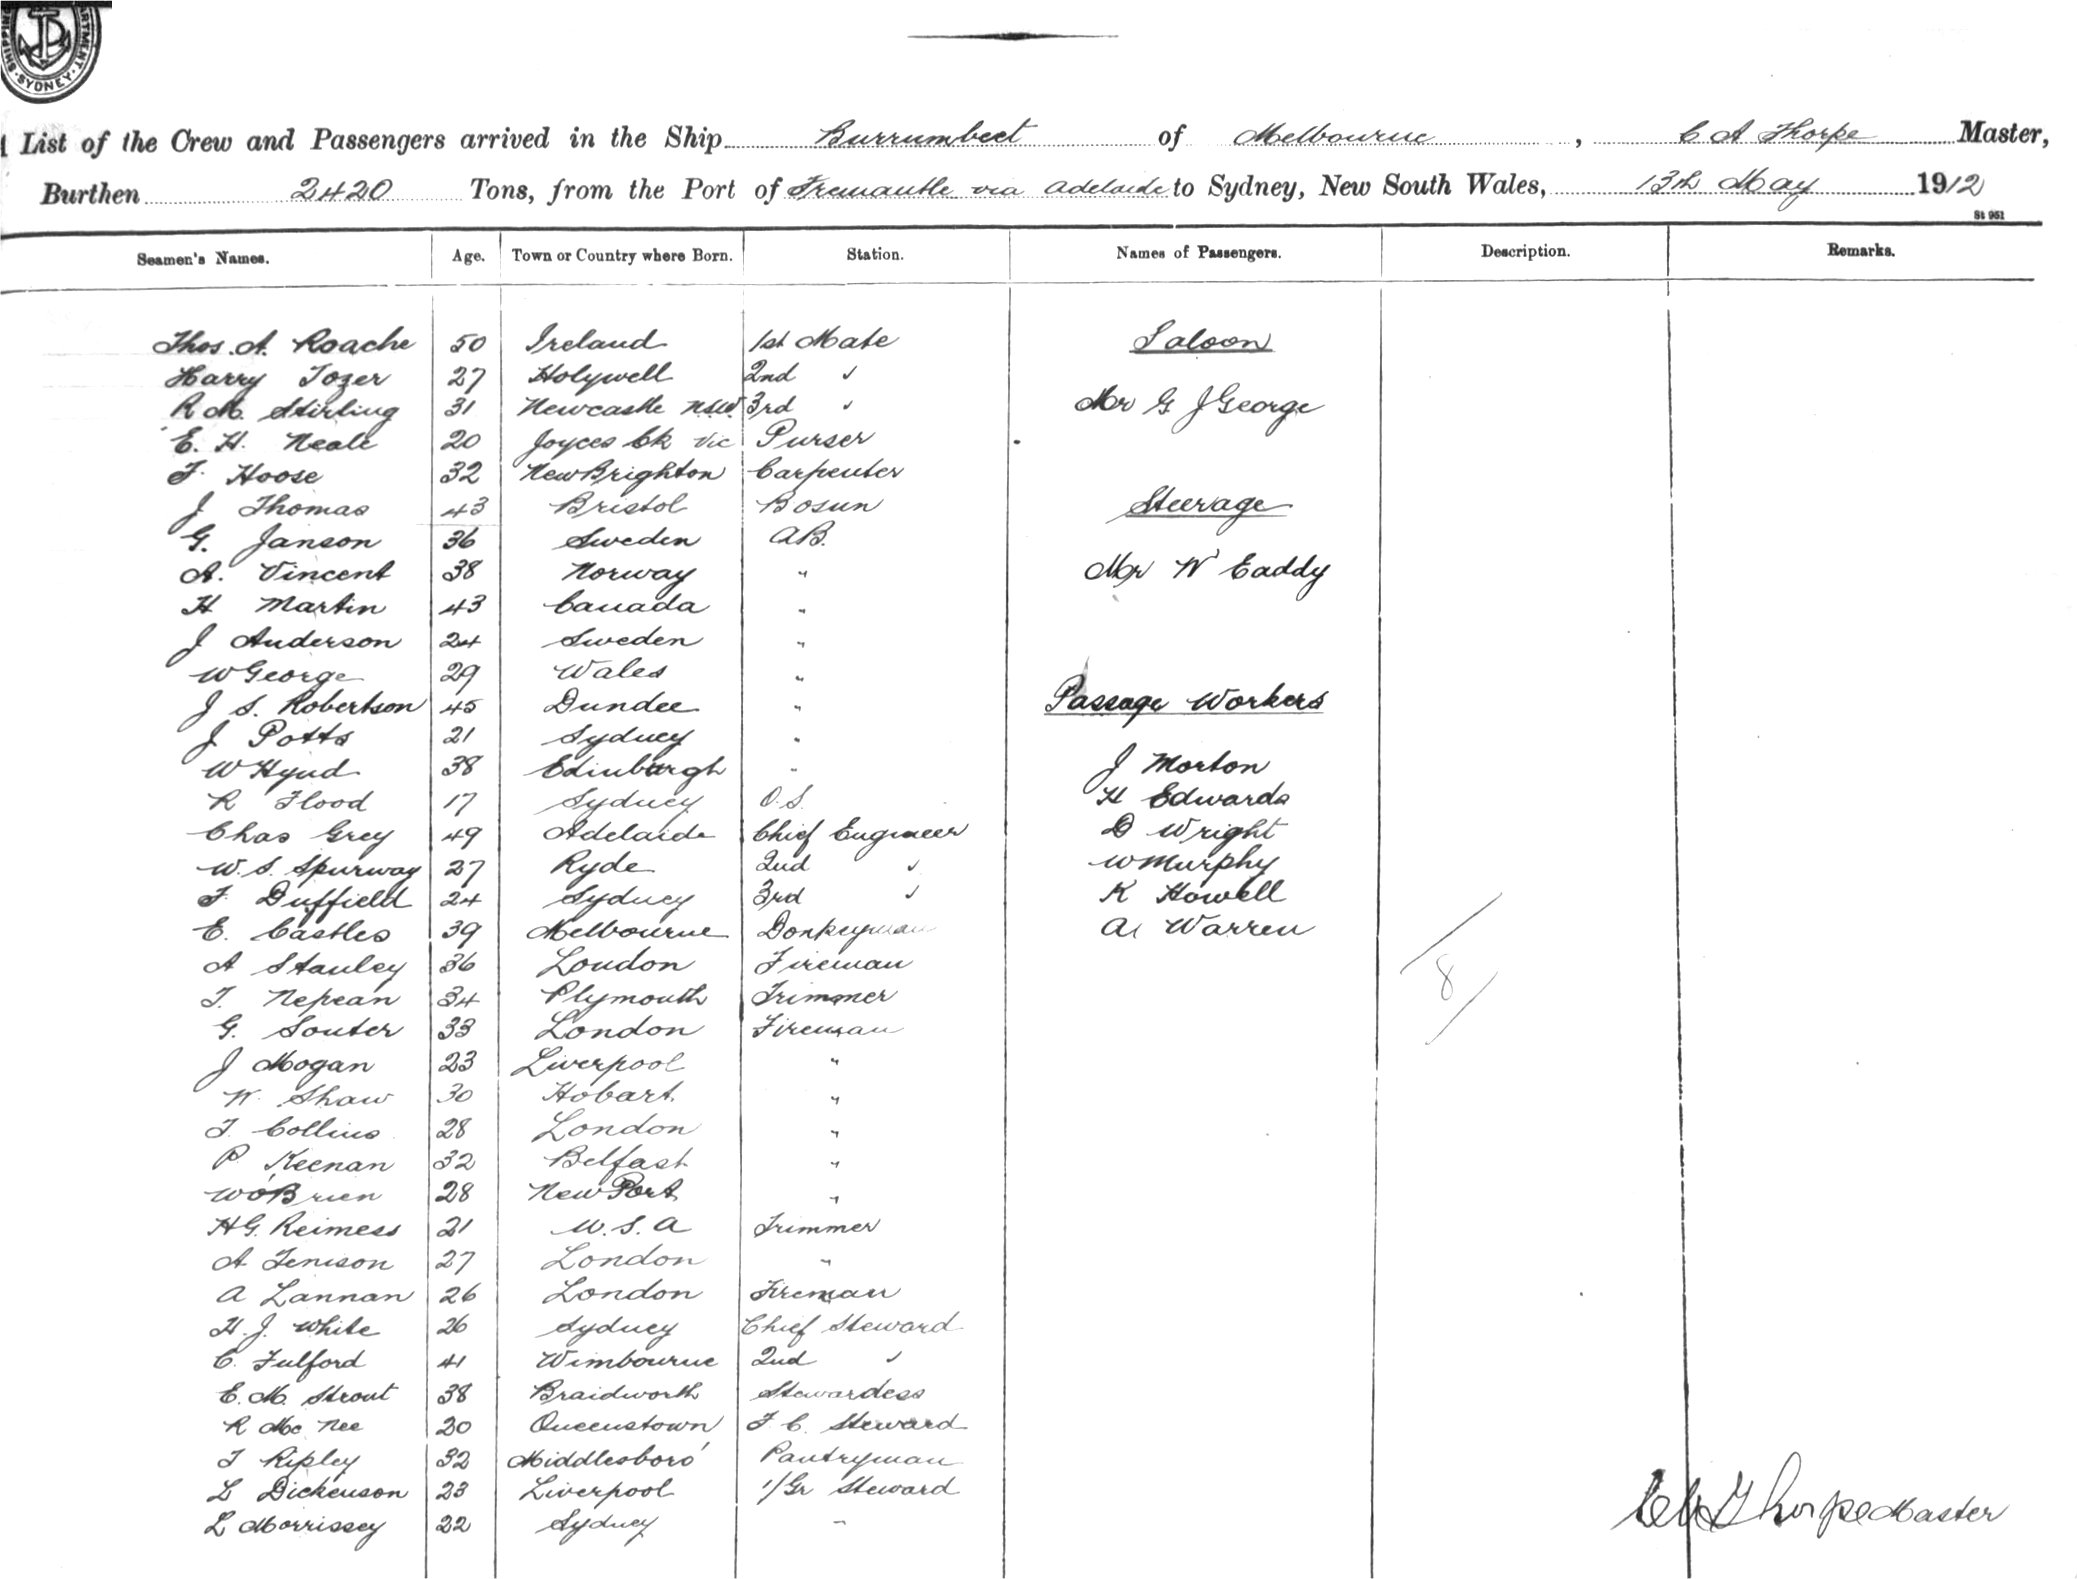 SHIPPING DEPARTMENT. SYDNEY
List of the Crew and Passengers arrived in the Ship Burrumbeet of Melbourne, C A Thorpe Master,
Burthen 2420 Tons, from the Port of Fremantle via Adelaide to Sydney, New South Wales, 13th May 1912
St 951
Seamen's Names. Age. Town or Country where Born. Station. Names of Passengers. Description. Remarks.
Thos. A. Roache 50 Ireland 1st Mate Saloon
Harry Tozer 27 Holywell 2nd "
R M Stirling 31 Newcastle NSW. 3rd " Mr G J George
E. H. Neale 20 Joyces Ck Vic Purser
F. Hoose 32 New Brighton Carpenter
J Thomas 43 Bristol Bosun Steerage
G. Janson 36 Sweden A.B.
A. Vincent 38 Norway " Mr W Eaddy
H Martin 43 Canada "
J Anderson 24 Sweden "
W George 29 Wales "
J S. Robertson 45 Dundee " Passage Workers
J Potts 21 Sydney "
W Hynd 38 Edinburgh " J Morton
R Flood 17 Sydney O.S. H Edwards
Chas Grey 49 Adelaide Chief Engineer D Wright
W. S. Spurway 27 Ryde 2nd " W Murphy
F. Duffield 24 Sydney 3rd " K Howell
E. Castles 39 Melbourne Donkeyman A Warren
A Stanley 36 London Fireman
T. Nepean 34 Plymouth Trimmer 8
G. Souter 33 London Fireman
J Mogan 23 Liverpool "
W. Shaw 30 Hobart "
T. Collins 28 London "
P Keenan 32 Belfast "
W O'Brien 28 New Port "
H G. Reimess 21 U.S.A Trimmer
A Tenison 27 London "
A Lannan 26 London Fireman
H. J. White 26 Sydney Chief Steward
C. Fulford 41 Wimbourne 2nd "
E. M. Strout 38 Braidworth Stewardess
R Mc Nee 20 Queenstown F. C. Steward
T Ripley 32 Middlesboro' Pantryman
L Dickenson 23 Liverpool 1/Gr Steward
L Morrissey 22 Sydney "
C A Thorpe Master